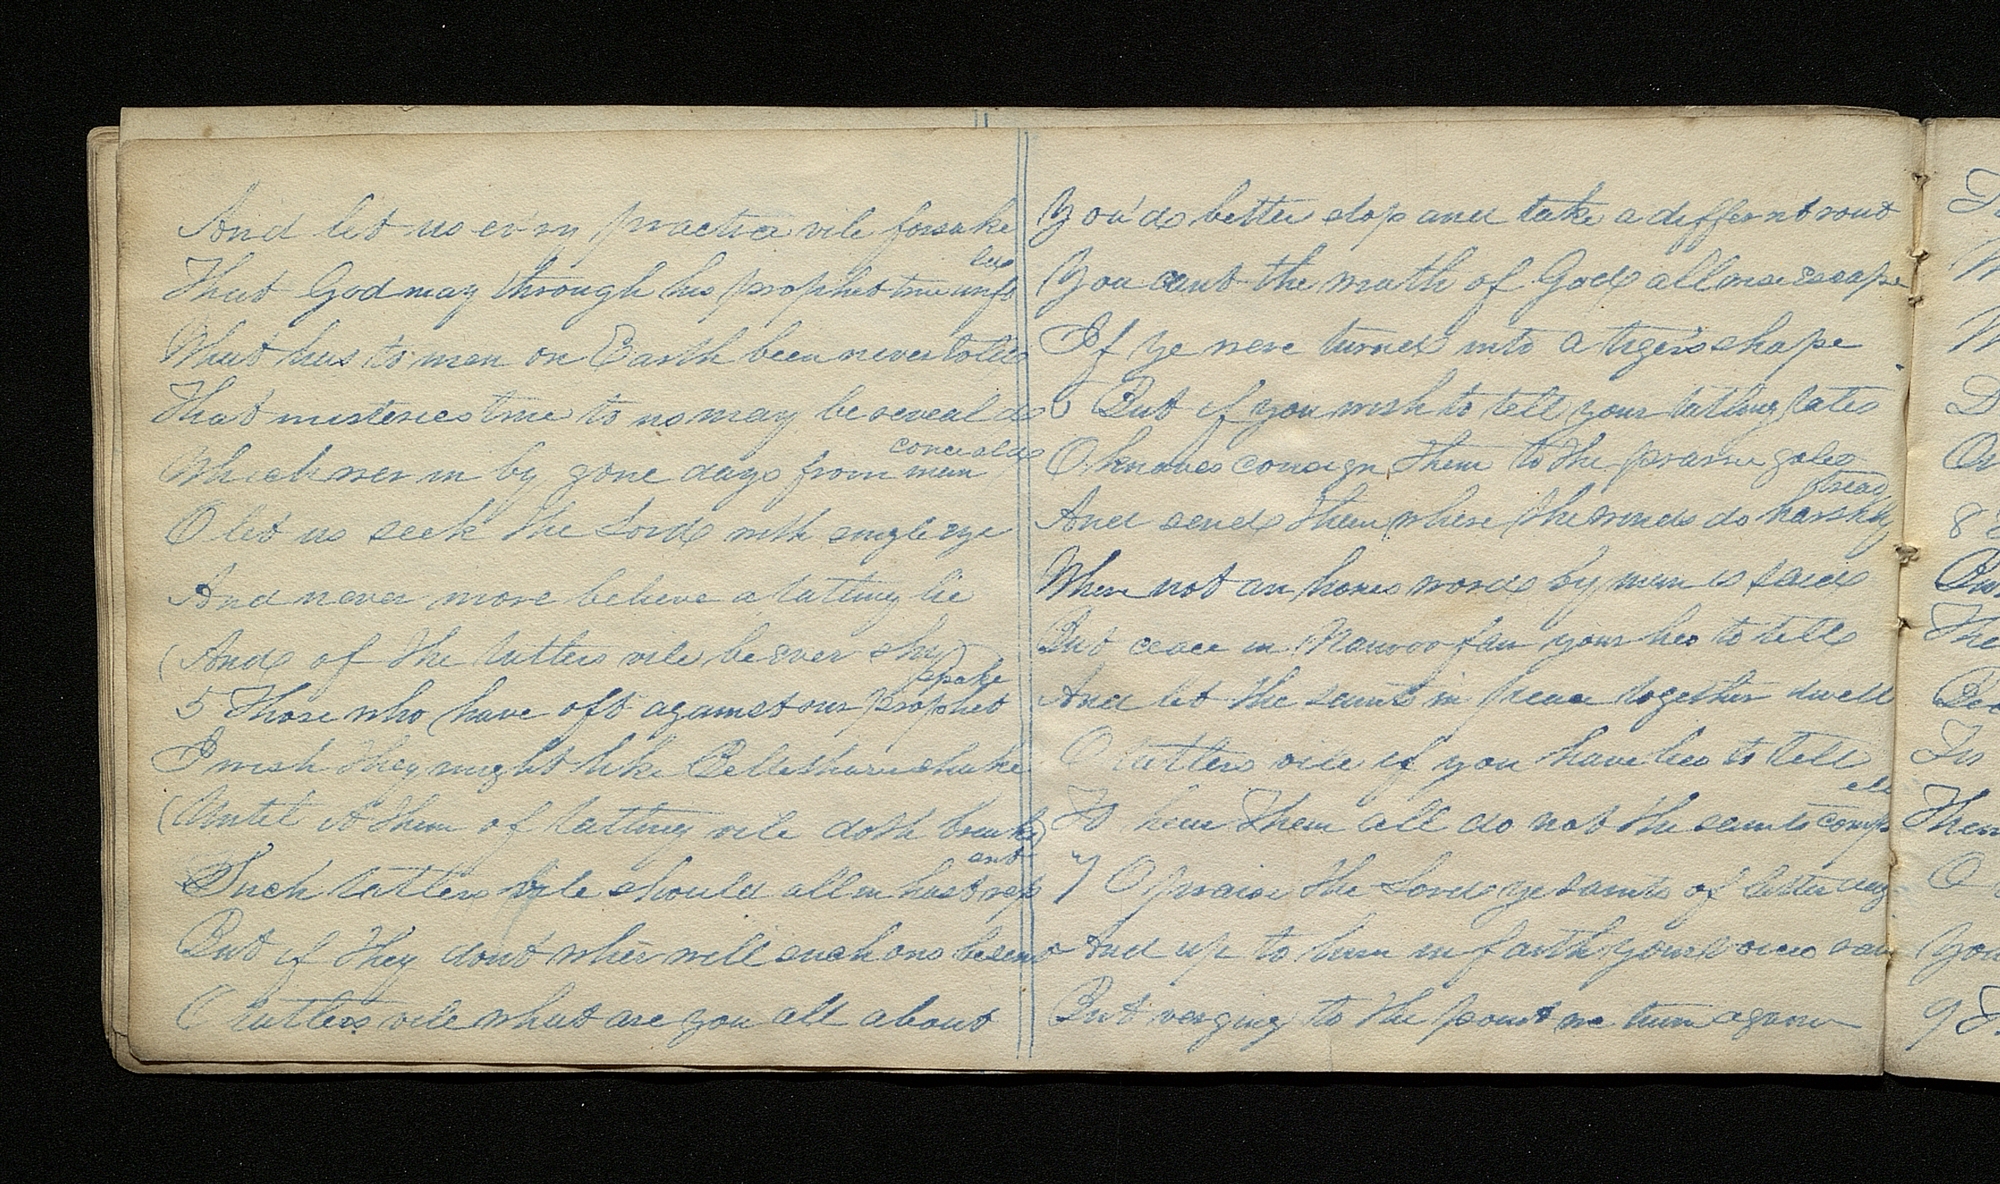 And let us evry practice vile forsake
That God may through his prophet true unfold
What has to man on Earth been never told
That misteries true to us may be reveald
Which wer in by gone days from man conceald
O let us seek the Lord with single eye
And never more believe a tatling lie
(And of the tatlers vile be ever shy)
5 Those who have oft against our prophet spoke
I wish they might like Belleshazzer shake
(Until it them of tatling vile doth break)
Such tatlers vile should all in hast repent
But if they dont wher will such ons be sent
O tatlers vile what are you all about
You'd better stop and take a differnt rout
You cant the wrath of God allwise escape
If ye were turned into a tigers shape
6 But if you wish to tell your tatling tales
O knaves consign them to the prarie gales
And send them where the winds do harshly
Where not an hones word by man is said
But ceace in Nauvoo fair your lies to tell
And let the saints in peace together dwell
O tatlers vile if you have lies to tell
To hear them all do not the saints compell
7 O praise the Lord ye saints of latter day
And up to him in faith your voices
But verging to the point we turn again
8
9